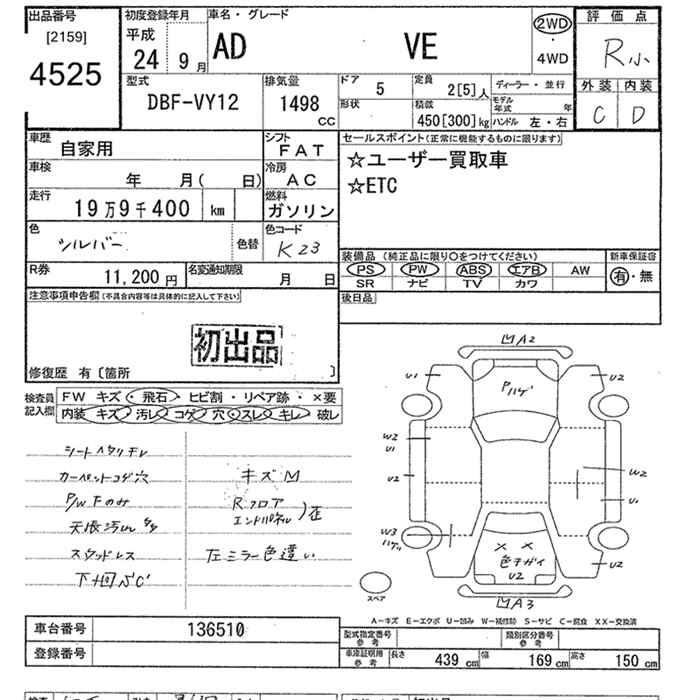 出品番号
[2159]
4525
初度登録年月
平成
24 9 月
車名・グレード
AD VE
2WD
4WD
評価点
R小
外装 内装
C D
型式
DBF-VY12
排気量
1498 cc
ドア
5
形状
定員
2[5]人
積載
450[300]kg
ディーラー・並行
モデル年式 年
ハンドル 左・右
車歴
自家用
車検
年 月( 日)
走行
19万9千400 km
色
シルバー
色替
シフト
FAT
冷房
AC
燃料
ガソリン
色コード
K23
セールスポイント(正常に機能するものに限ります)
☆ユーザー買取車
☆ETC
R券
11,200 円
名変通知期限
月 日
装備品 (純正品に限り○をつけてください)
PS PW ABS エアB AW
SR ナビ TV カワ
新車保証書
有・無
後日品
注意事項申告欄(不具合内容等は具体的に記入して下さい)
初出品
修復歴 有〔箇所 〕
検査員記入欄
FW キズ・飛石・ヒビ割・リペア跡・×要
内装 キズ・汚レ・コゲ・穴・スレ・キレ・破レ
シートヘタリキレ
カーペットコゲ穴
P/W Fのみ
スタッドレス
下廻りS"C"
キズM
Rフロア
エンドパネル)歪
左ミラー色違い
凹A2
U1
U2
Pハゲ
W2
U1
U2
W2
U1
W3
ハゲ
××
色チガイ
U2
U2
凹A3
スペア
A-キズ E-エクボ U-凹み W-補修跡 S-サビ C-腐食 XX-交換済
車台番号
136510
登録番号
型式指定番号
参考
類別区分番号
参考
車庫証明用
参考
長さ 439 cm
幅 169 cm
高さ 150 cm